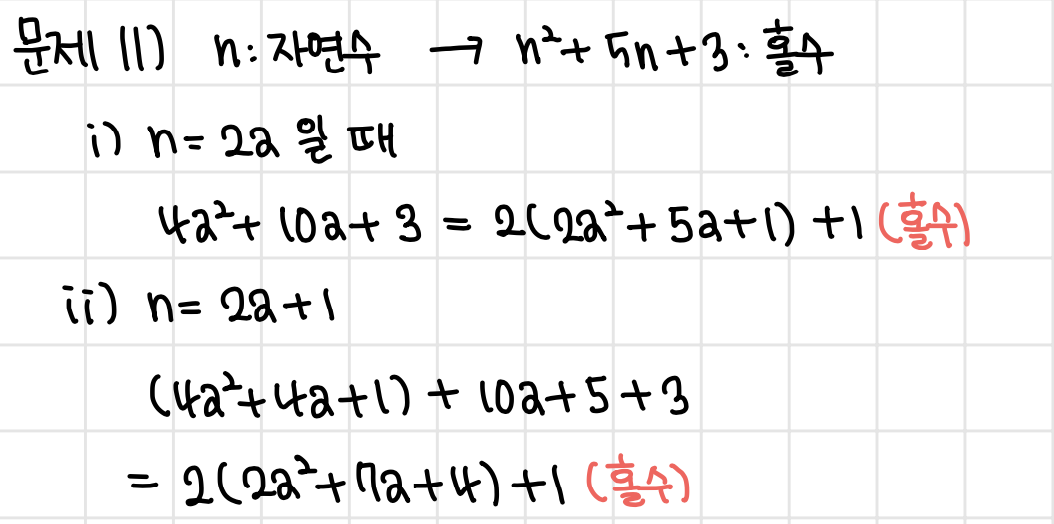 문제 11) n: 자연수 → n²+5n+3: 홀수
i) n=2a 일 때
4a²+10a+3 = 2(2a²+5a+1)+1 (홀수)
ii) n=2a+1
(4a²+4a+1)+10a+5+3
= 2(2a²+7a+4)+1 (홀수)